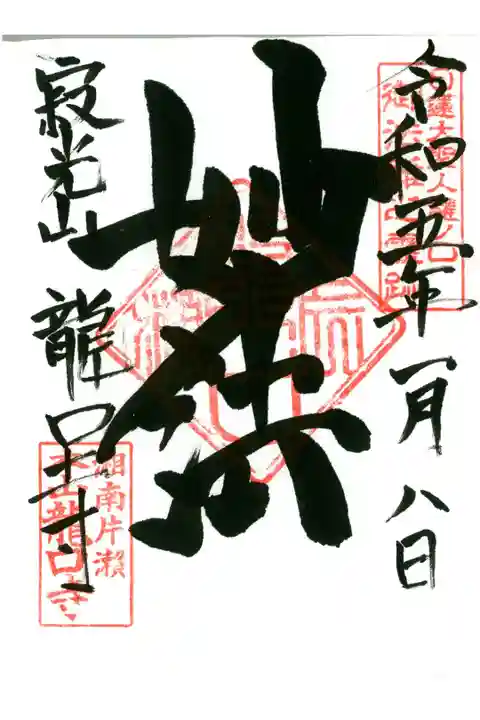 令和五年一月八日
妙法
寂光山 龍口寺
湘南片瀬
龍口寺